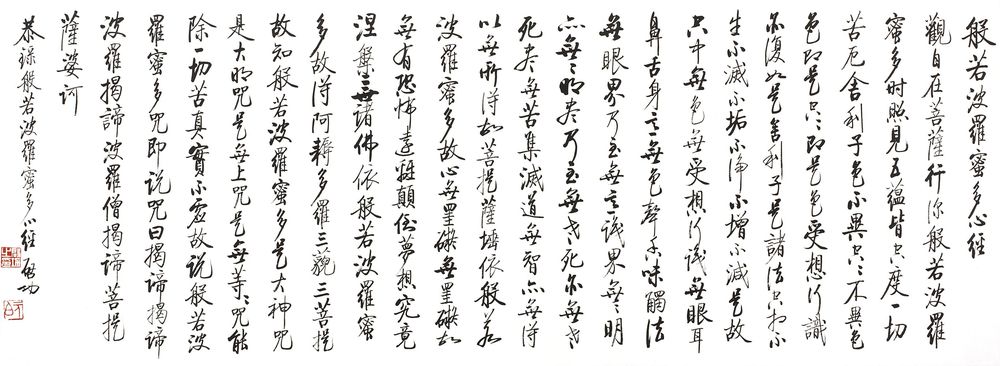 般若波羅蜜多心經
觀自在菩薩行深般若波羅
蜜多時照見五蘊皆空度一切
苦厄舍利子色不異空空不異色
色即是空空即是色受想行識
亦復如是舍利子是諸法空相不
生不滅不垢不淨不增不減是故
空中無色無受想行識無眼耳
鼻舌身意無色聲香味觸法
無眼界乃至無意識界無無明
亦無無明盡乃至無老死亦無老
死盡無苦集滅道無智亦無得
以無所得故菩提薩埵依般若
波羅蜜多故心無罣礙無罣礙故
無有恐怖遠離顛倒夢想究竟
涅槃三世諸佛依般若波羅蜜
多故得阿耨多羅三藐三菩提
故知般若波羅蜜多是大神咒
是大明咒是無上咒是無等等咒能
除一切苦真實不虛故說般若波
羅蜜多咒即說咒曰揭諦揭諦
波羅揭諦波羅僧揭諦菩提
薩婆訶
恭錄般若波羅蜜多心經 啟功